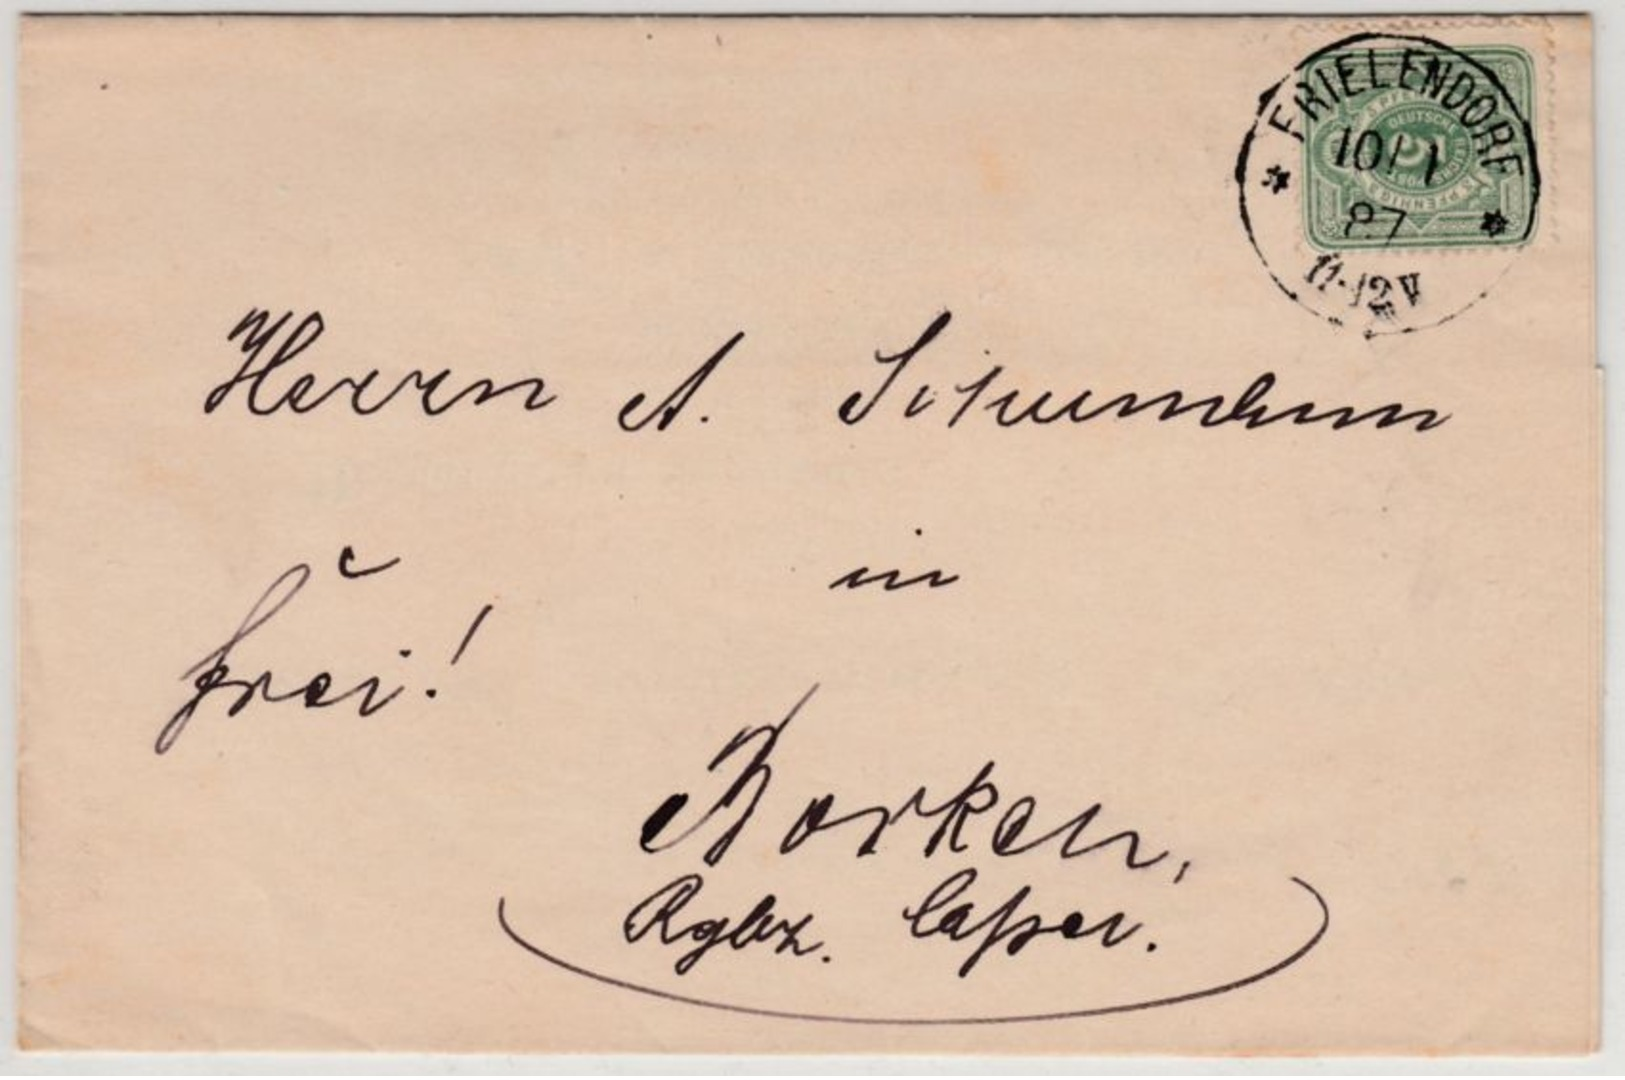 FRIELENDORF
10/1
87
11-12V
5 PFENNIG
DEUTSCHE REICHSPOST
5
Herrn A.
in
frei!
Borken,
Rgbz. Cassel.